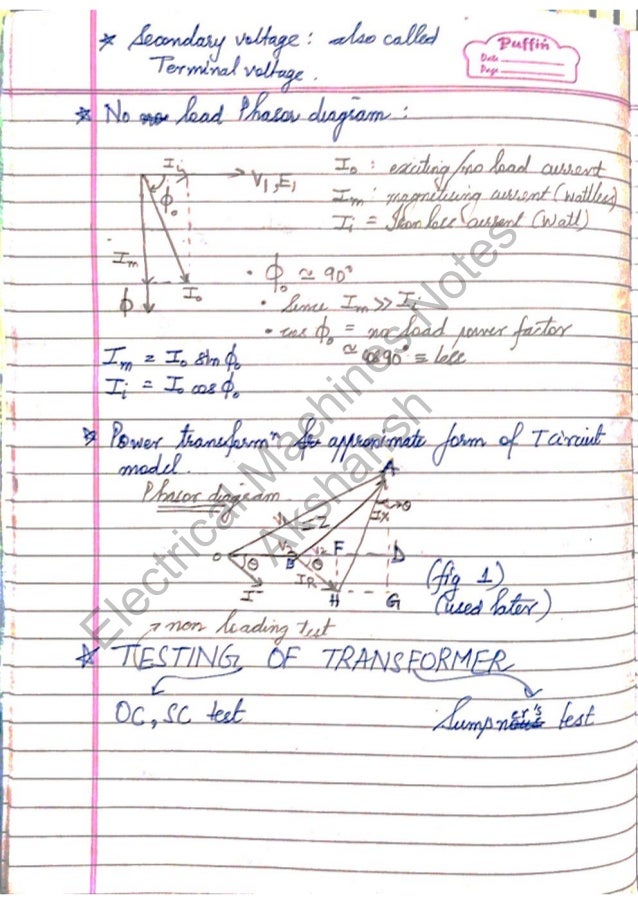 * Secondary voltage: also called
Terminal voltage.
Puffin
Date
Page
* No load Phasor diagram:
Ii
V1, E1
ϕo
Im
Io
ϕ
Io : exciting/no load current
Im : magnetising current (wattless)
Ii = Iron loss current (Watt)
• ϕo ≃ 90°
• Since Im >> Ii
• cos ϕo = no load power factor
≃ cos 90° ≡ less
Im = Io sin ϕo
Ii = Io cos ϕo
* Power transformⁿ for approximate form of T circuit
model.
Phasor diagram.
A
V1
IZ
IX
θ
O
θ
V2
B
V2
θ
F
D
I
IR
H
G
(fig 1)
(used later)
→ non loading test
* TESTING OF TRANSFORMER
OC, SC test
Sumpner's test
Electrical Machines Notes
Akshansh